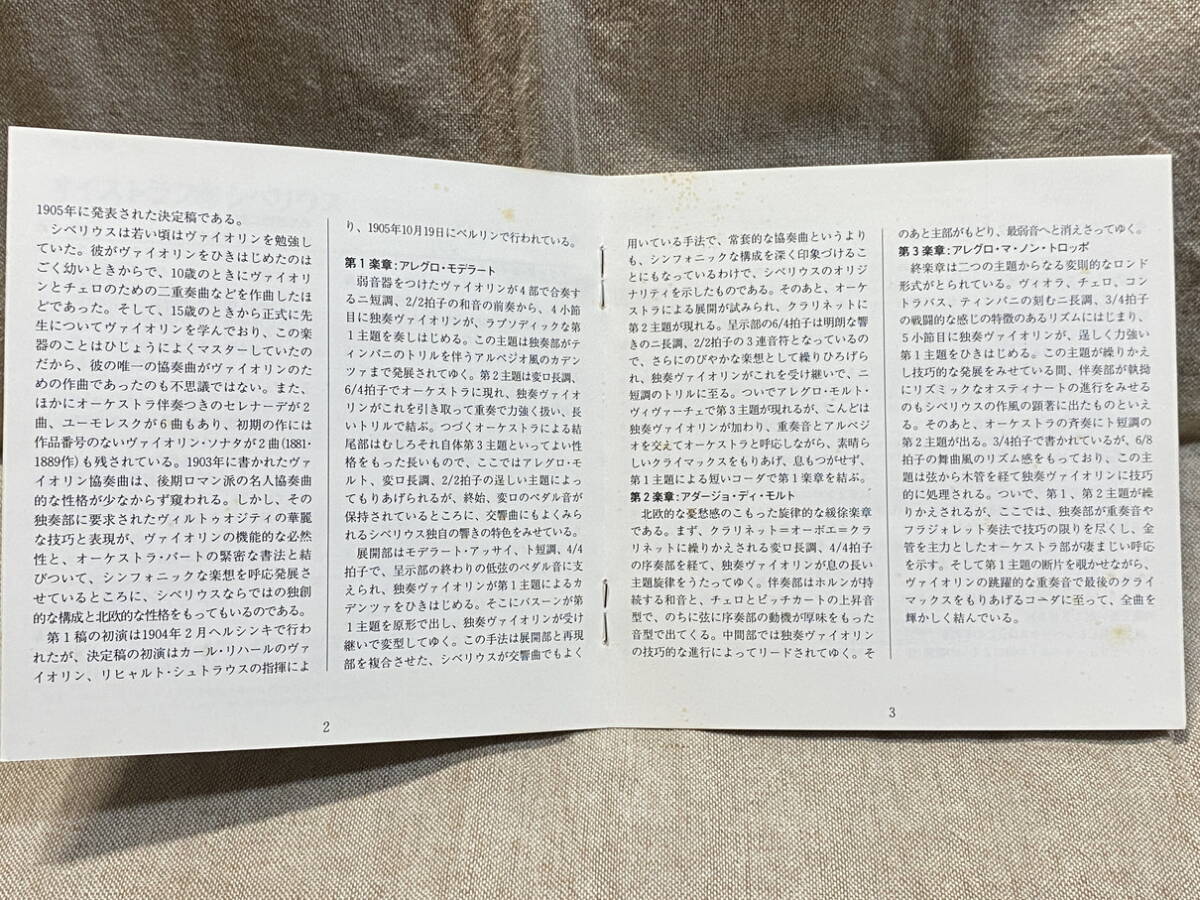 1905年に発表された決定稿である。
　シベリウスは若い頃はヴァイオリンを勉強し
ていた。彼がヴァイオリンをひきはじめたのは
ごく幼いときからで、10歳のときにヴァイオリ
ンとチェロのための二重奏曲などを作曲したほ
どであった。そして、15歳のときから正式に先
生についてヴァイオリンを学んでおり、この楽
器のことはひじょうによくマスターしていたの
だから、彼の唯一の協奏曲がヴァイオリンのた
めの作曲であったのも不思議ではない。また、
ほかにオーケストラ伴奏つきのセレナーデが2
曲、ユーモレスクが6曲もあり、初期の作には
作品番号のないヴァイオリン・ソナタが2曲(1881-
1889作)も残されている。1903年に書かれたヴァ
イオリン協奏曲は、後期ロマン派の名人協奏曲
的な性格が少なからず窺われる。しかし、その
独奏部に要求されたヴィルトゥオジティの華麗
な技巧と表現が、ヴァイオリンの機能的な必然
性と、オーケストラ・パートの緊密な書法と結
びついて、シンフォニックな楽想を呼応発展さ
せているところに、シベリウスならではの独創
的な構成と北欧的な性格をもってもいるのである。
　第1稿の初演は1904年2月ヘルシンキで行わ
れたが、決定稿の初演はカール・リハールのヴァ
イオリン、リヒャルト・シュトラウスの指揮によ
り、1905年10月19日にベルリンで行われている。
第1楽章：アレグロ・モデラート
　弱音器をつけたヴァイオリンが4部で合奏す
るニ短調、2/2拍子の和音の前奏から、4小節
目に独奏ヴァイオリンが、ラプソディックな第
1主題を奏しはじめる。この主題は独奏部がティ
ンパニのトリルを伴うアルペジオ風のカデン
ツァまで発展されてゆく。第2主題は変ロ長調、
6/4拍子でオーケストラに現れ、独奏ヴァイオ
リンがこれを引き取って重奏で力強く扱い、長
いトリルで結ぶ。つづくオーケストラによる結
尾部はむしろそれ自体第3主題といってよい性
格をもった長いもので、ここではアレグロ・モ
ルト、変ロ長調、2/2拍子の逞しい主題によっ
てもりあげられるが、終始、変ロのペダル音が
保持されているところに、交響曲にもよくみら
れるシベリウス独自の響きの特色をみせている。
　展開部はモデラート・アッサイ、ト短調、4/4
拍子で、呈示部の終わりの低弦のペダル音に支
えられ、独奏ヴァイオリンが第1主題によるカ
デンツァをひきはじめる。そこにバスーンが第
1主題を原形で出し、独奏ヴァイオリンが受け
継いで変型してゆく。この手法は展開部と再現
部を複合させた、シベリウスが交響曲でもよく
2
用いている手法で、常套的な協奏曲というより
も、シンフォニックな構成を深く印象づけるこ
とにもなっているわけで、シベリウスのオリジ
ナリティを示したものである。そのあと、オーケ
ストラによる展開が試みられ、クラリネットに
第2主題が現れる。呈示部の6/4拍子は明朗な響
きのニ長調、2/2拍子の3連音符となっているの
で、さらにのびやかな楽想として繰りひろげら
れ、独奏ヴァイオリンがこれを受け継いで、ニ
短調のトリルに至る。ついでアレグロ・モルト・
ヴィヴァーチェで第3主題が現れるが、こんどは
独奏ヴァイオリンが加わり、重奏音とアルペジ
オを交えてオーケストラと呼応しながら、素晴ら
しいクライマックスをもりあげ、息もつがせず、
第1主題による短いコーダで第1楽章を結ぶ。
第2楽章：アダージョ・ディ・モルト
　北欧的な憂愁感のこもった旋律的な緩徐楽章
である。まず、クラリネット＝オーボエ＝クラ
リネットに繰りかえされる変ロ長調、4/4拍子
の序奏部を経て、独奏ヴァイオリンが息の長い
主題旋律をうたってゆく。伴奏部はホルンが持
続する和音と、チェロとピッチカートの上昇音
型で、のちに弦に序奏部の動機が厚味をもった
音型で出てくる。中間部では独奏ヴァイオリン
の技巧的な進行によってリードされてゆく。そ
のあと主部がもどり、最弱音へと消えさってゆく。
第3楽章：アレグロ・マ・ノン・トロッポ
　終楽章は二つの主題からなる変則的なロンド
形式がとられている。ヴィオラ、チェロ、コン
トラバス、ティンパニの刻むニ長調、3/4拍子
の戦闘的な感じの特徴のあるリズムにはじまり、
5小節目に独奏ヴァイオリンが、逞しく力強い
第1主題をひきはじめる。この主題が繰りかえ
し技巧的な発展をみせている間、伴奏部が執拗
にリズミックなオスティナートの進行をみせる
のもシベリウスの作風の顕著に出たものといえ
る。そのあと、オーケストラの斉奏にト短調の
第2主題が出る。3/4拍子で書かれているが、6/8
拍子の舞曲風のリズム感をもっており、この主
題は弦から木管を経て独奏ヴァイオリンに技巧
的に処理される。ついで、第1、第2主題が繰
りかえされるが、ここでは、独奏部が重奏音や
フラジォレット奏法で技巧の限りを尽くし、金
管を主力としたオーケストラ部が凄まじい呼応
を示す。そして第1主題の断片を覗かせながら、
ヴァイオリンの跳躍的な重奏音で最後のクライ
マックスをもりあげるコーダに至って、全曲を
輝かしく結んでいる。
3